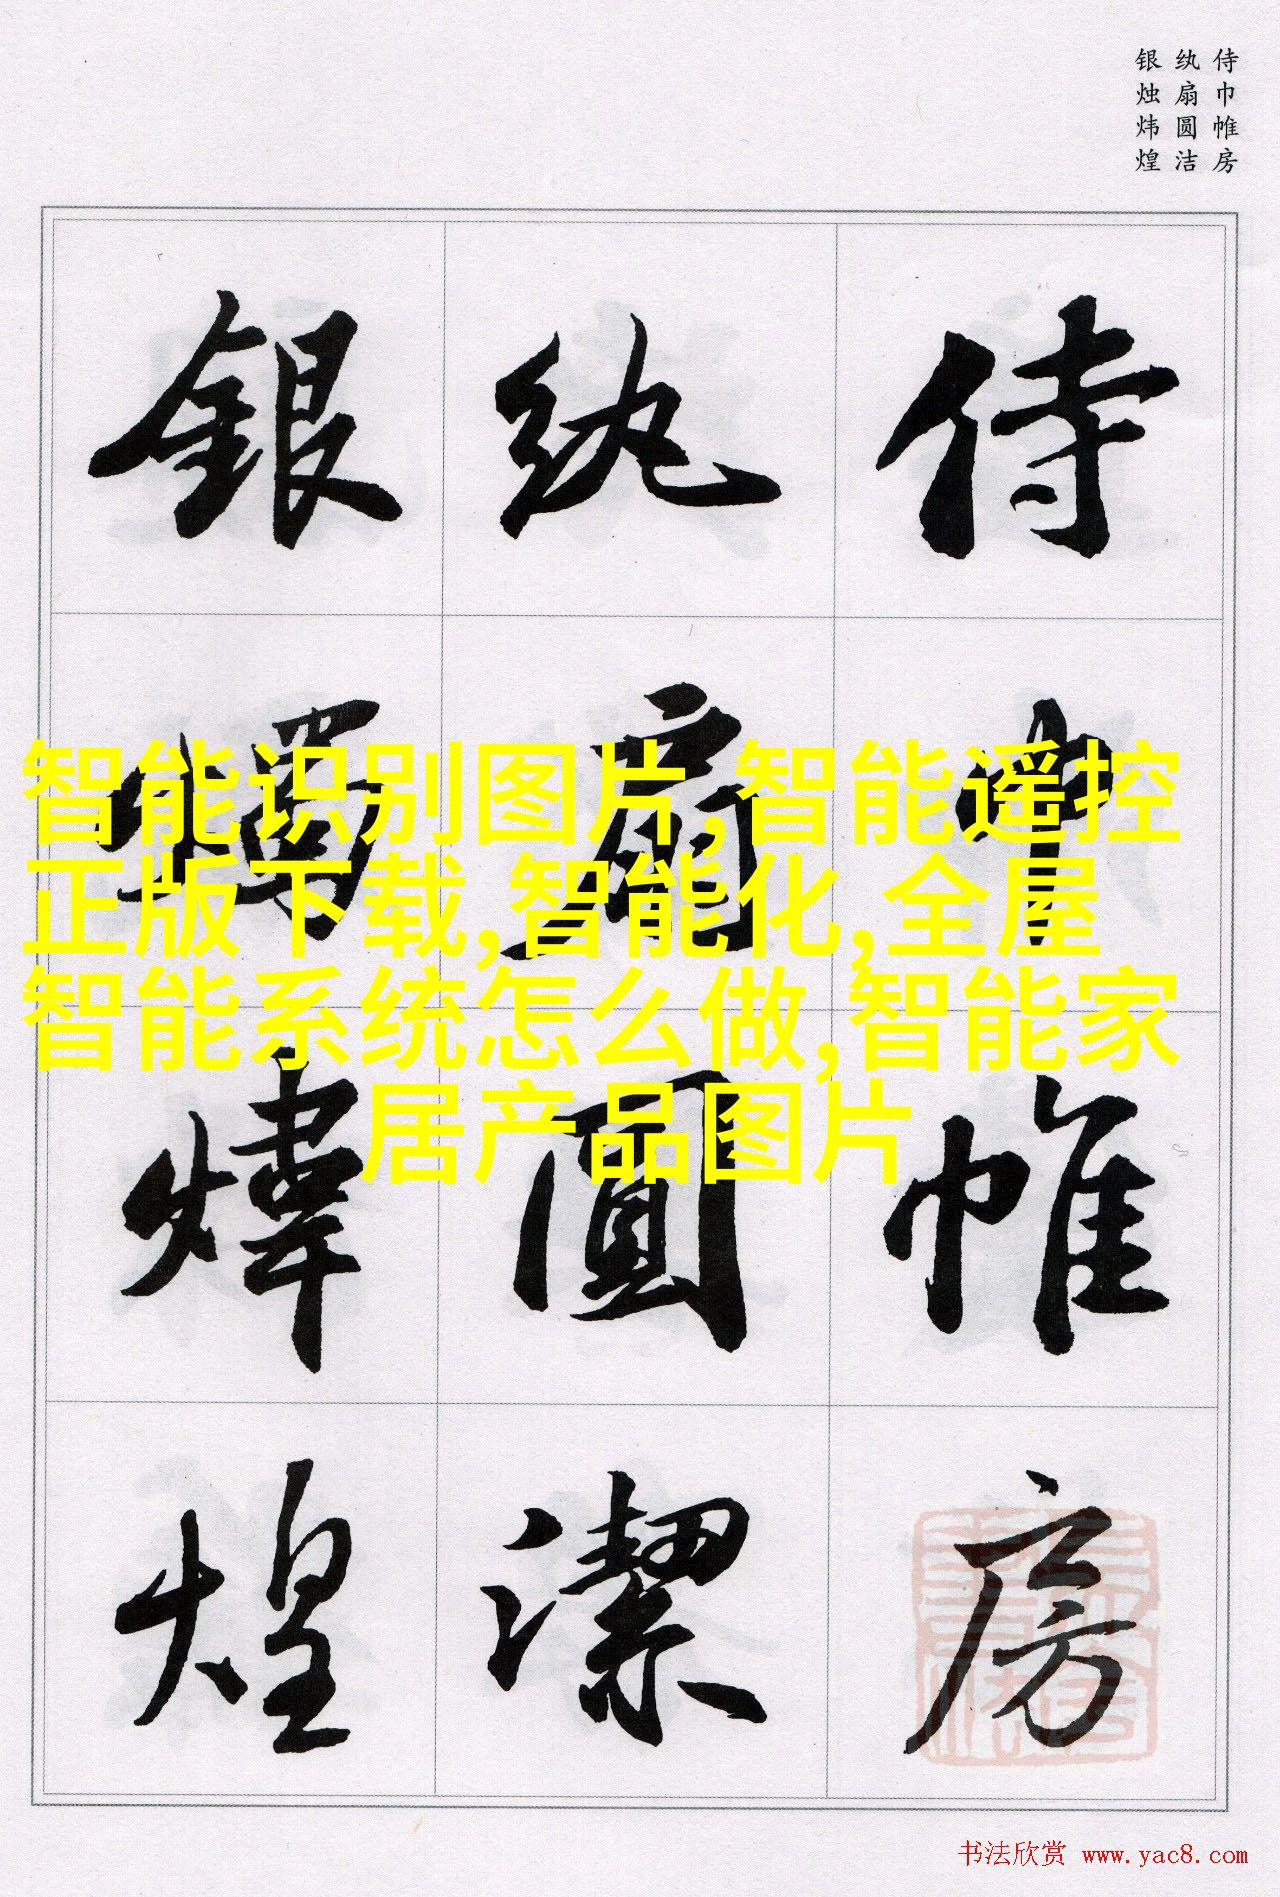 侍巾帷房
纨扇圆洁
银烛炜煌
侍巾帷房
纨扇圓潔
銀燭煒煌
智能识别图片,智能遥控
正版下载,智能化,全屋
智能系统怎么做,智能家
居产品图片
书法欣赏 www.yac8.com